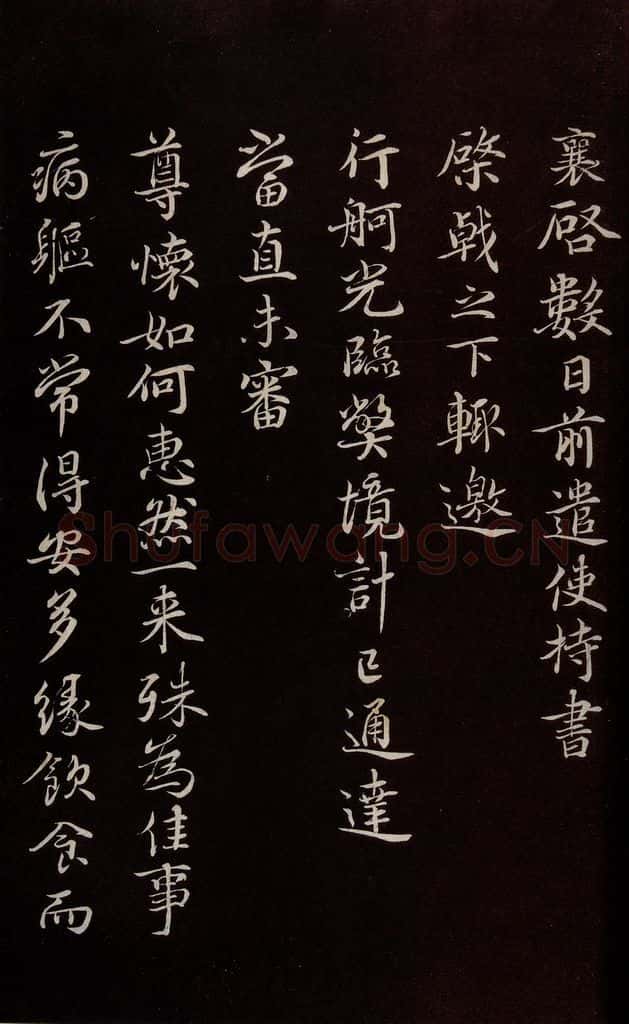 襄啓數日前遣使持書
棨戟之下輒邀
行舸光臨弊境計已通達
當直未審
尊懷如何惠然一来殊為佳事
病軀不常得安多緣飲食而
Shufawang.CN